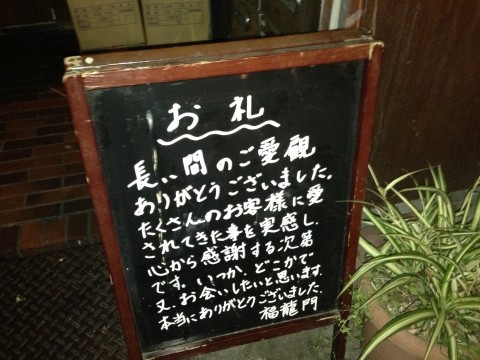 お礼
長い間のご愛観
ありがとうございました。
たくさんのお客様に愛
されてきた事を実感し、
心から感謝する次第
です。いつか、どこかで
又、お会いしたいと思います。
本当にありがとうございました。
福龍門